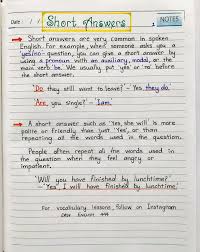 Date / / Short Answers NOTES
→ Short answers are very common in spoken
English. For example, when someone asks you a
yes/no question, you can give a short answer by
using a pronoun with an auxiliary, modal, or the
main verb be. We usually put 'yes' or 'no' before
the short answer.
Do they still want to leave? - Yes they do.
Are you single? - I am.
→ A short answer such as 'Yes, she will' is more
polite or friendly than just 'Yes', or than
repeating all the words used in the
question.
People often repeat all the words used in
the question when they feel angry or
impatient.
'Will you have finished by lunchtime?'
- 'Yes, I will have finished by lunchtime.'
For vocabulary lessons, follow on Instagram